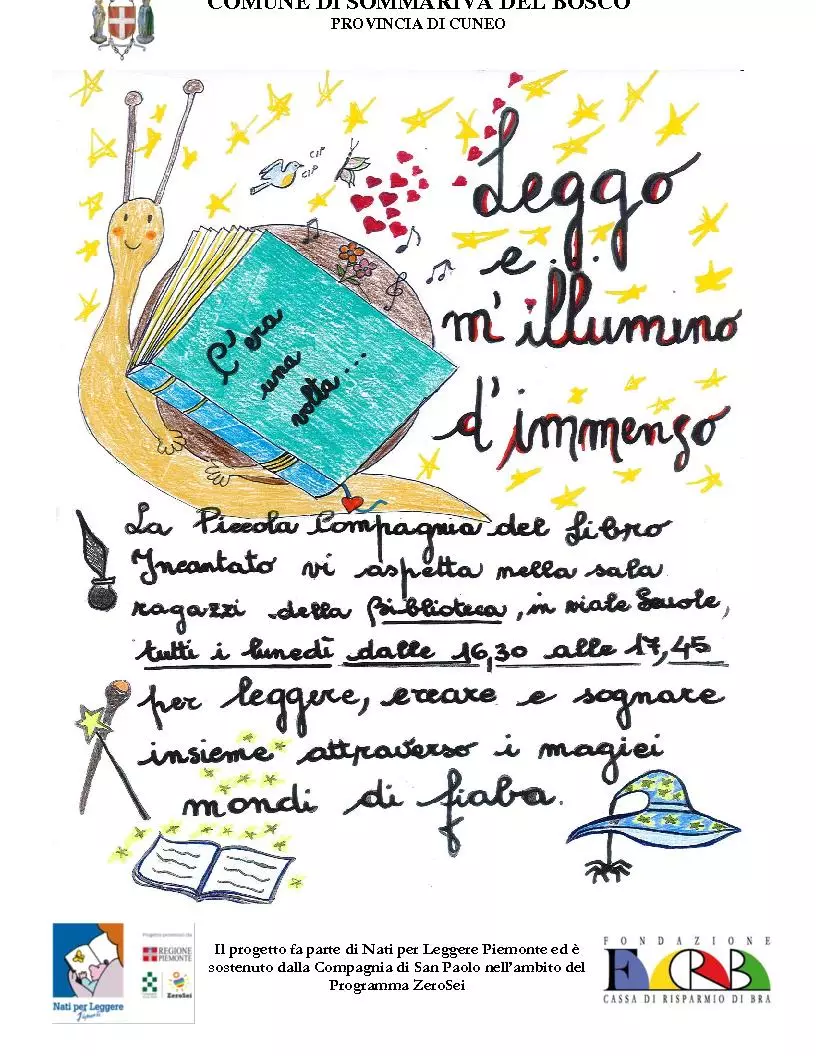 COMUNE DI SOMMARIVA DEL BOSCO
PROVINCIA DI CUNEO
Leggo
e
m'illumino
d'immenso
CIP
CIP
C'era
una
volta...
La Piccola Compagnia del Libro
Incantato vi aspetta nella sala
ragazzi della Biblioteca, in viale Scuole,
tutti i lunedì dalle 16,30 alle 17,45
per leggere, creare e sognare
insieme attraverso i magici
mondi di fiaba.
Progetto promosso da
REGIONE
PIEMONTE
ZeroSei
Nati per Leggere
Piemonte
Il progetto fa parte di Nati per Leggere Piemonte ed è
sostenuto dalla Compagnia di San Paolo nell'ambito del
Programma ZeroSei
FONDAZIONE
CRB
CASSA DI RISPARMIO DI BRA